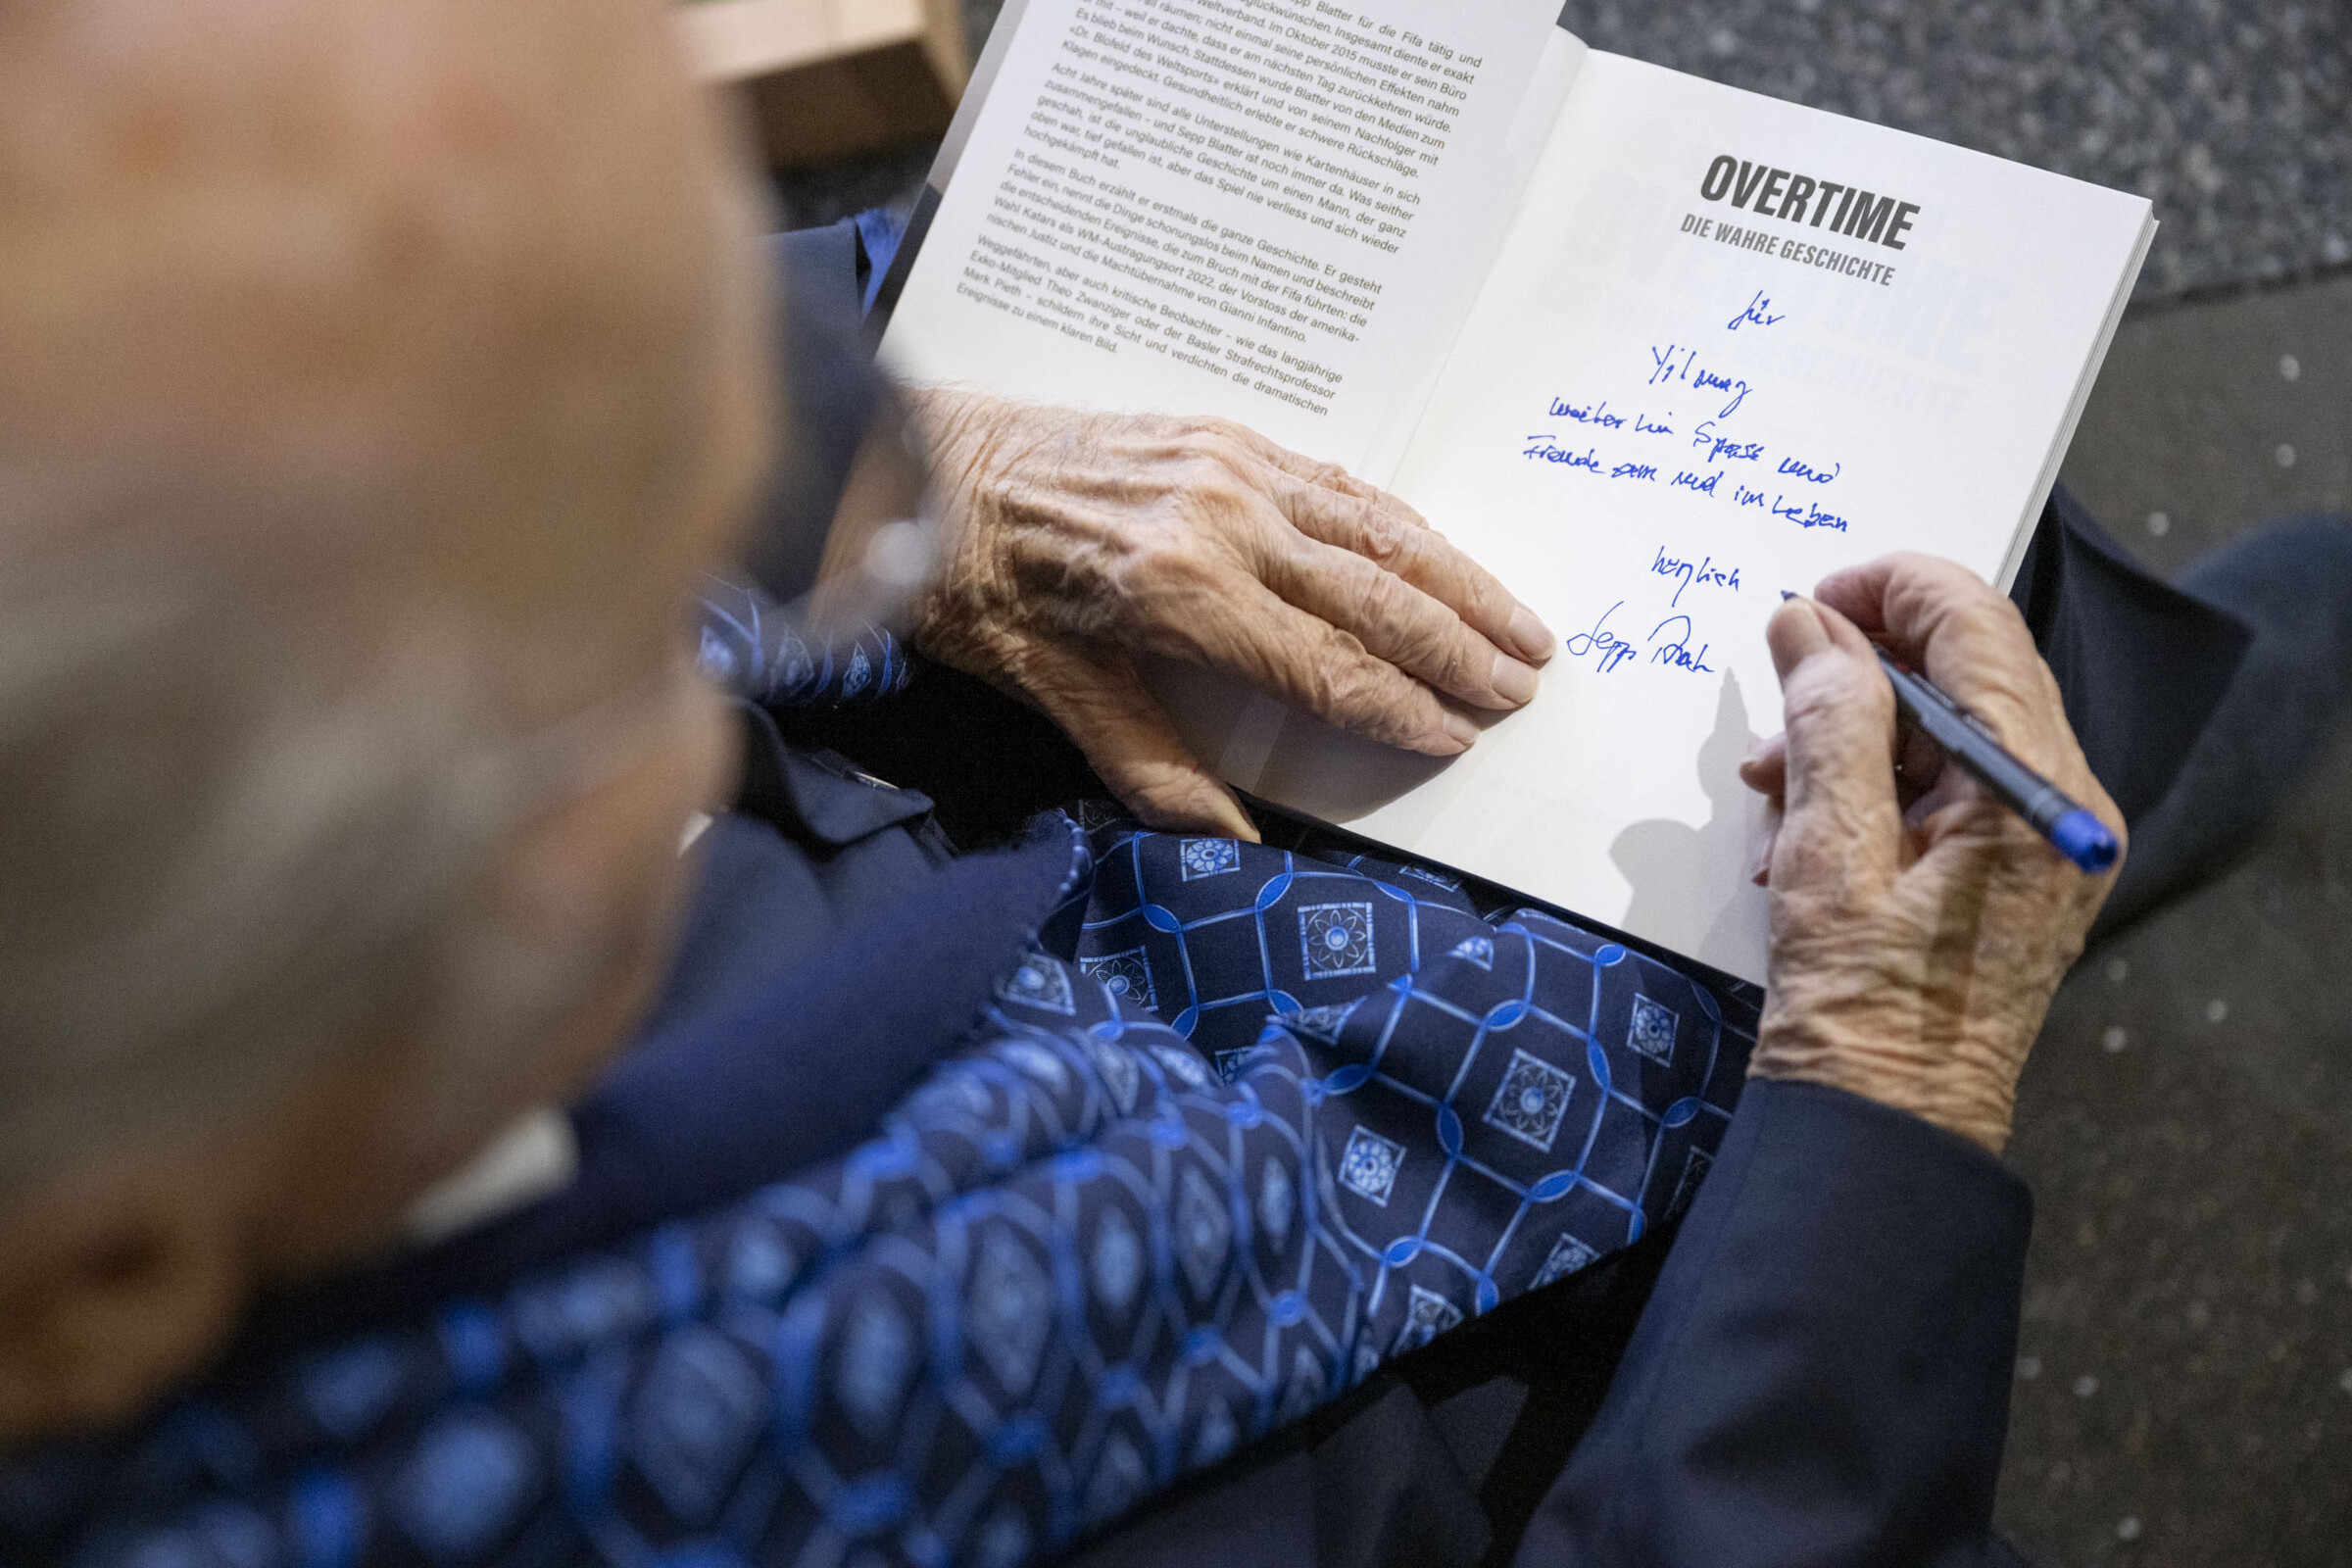 pp Blatter für die Fifa tätig und
glückwünschen. Insgesamt diente er exakt
Weltverband. Im Oktober 2015 musste er sein Büro
all räumen; nicht einmal seine persönlichen Effekten nahm
er mit – weil er dachte, dass er am nächsten Tag zurückkehren würde.
Es blieb beim Wunsch. Stattdessen wurde Blatter von den Medien zum
«Dr. Blofeld des Weltsports» erklärt und von seinem Nachfolger mit
Klagen eingedeckt. Gesundheitlich erlebte er schwere Rückschläge.
Acht Jahre später sind alle Unterstellungen wie Kartenhäuser in sich
zusammengefallen – und Sepp Blatter ist noch immer da. Was seither
geschah, ist die unglaubliche Geschichte um einen Mann, der ganz
oben war, tief gefallen ist, aber das Spiel nie verliess und sich wieder
hochgekämpft hat.
In diesem Buch erzählt er erstmals die ganze Geschichte. Er gesteht
Fehler ein, nennt die Dinge schonungslos beim Namen und beschreibt
die entscheidenden Ereignisse, die zum Bruch mit der Fifa führten: die
Wahl Katars als WM-Austragungsort 2022, der Vorstoss der amerika-
nischen Justiz und die Machtübernahme von Gianni Infantino.
Weggefährten, aber auch kritische Beobachter – wie das langjährige
Exko-Mitglied Theo Zwanziger oder der Basler Strafrechtsprofessor
Mark Pieth – schildern ihre Sicht und verdichten die dramatischen
Ereignisse zu einem klaren Bild.
OVERTIME
DIE WAHRE GESCHICHTE
für
Yilmaz
weiterhin Spass und
Freude im Leben
herzlich
Sepp Blatt